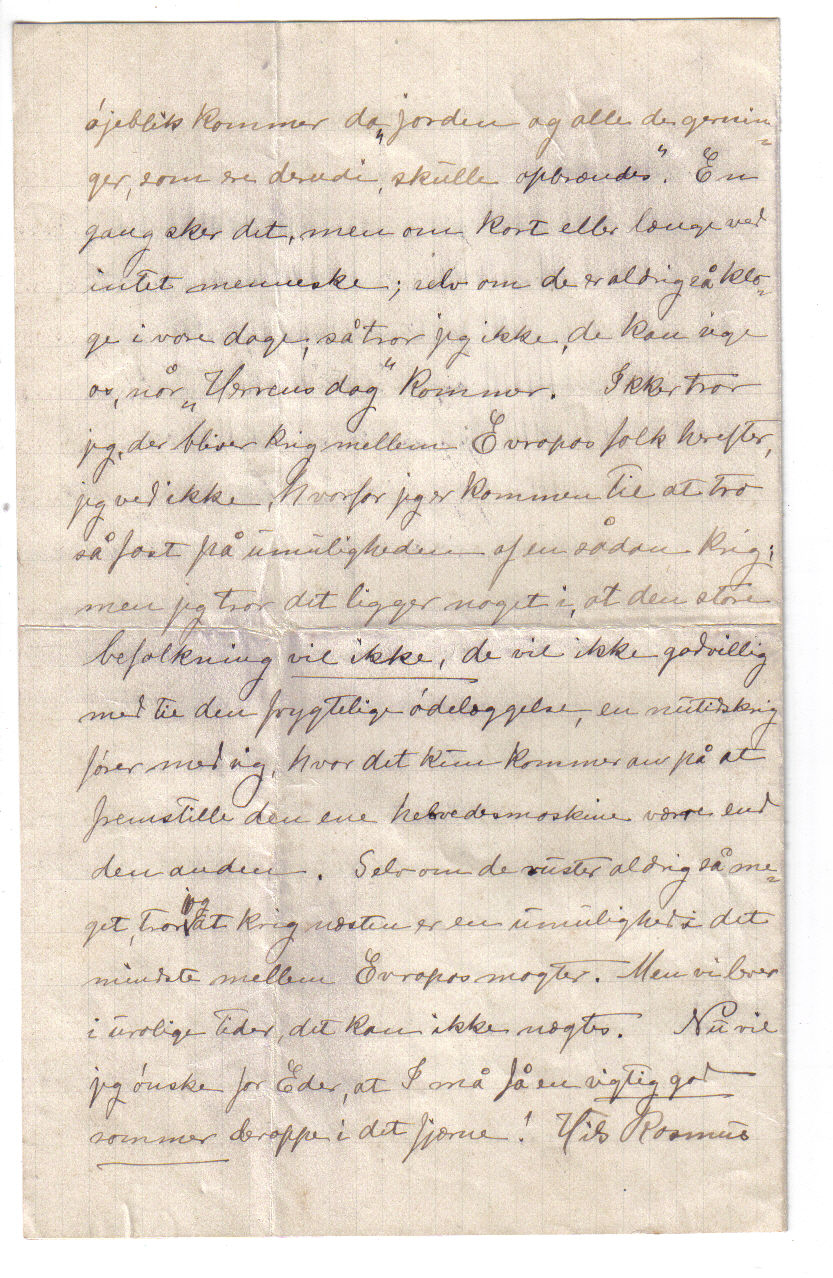 öjeblik kommer da „jorden og alle de gernin=
ger, som ere derudi, skulle opbrændes". En
gang sker det, men om kort eller længe ved
intet menneske; selv om de er aldrig så klo=
ge i vore dage, så tror jeg ikke, de kan sige
os, når „Herrens dag" kommer. Ikke tror
jeg, der bliver krig mellem Evropas folk herefter,
jeg ved ikke, hvorfor jeg er kommen til at tro
så fast på umuligheden af en sådan krig;
men jeg tror det ligger noget i, at den store
befolkning vil ikke, de vil ikke godvillig
med til den frygtelige ödelæggelse, en nutidskrig
fører med sig, hvor det kun kommer an på at
fremstille den ene helvedesmaskine værre end
den anden. Selv om de ruster aldrig så me=
get, tror jeg at krig næsten er en umulighed i det
mindste mellem Evropas magter. Men vi lever
i urolige tider, det kan ikke nægtes. Nu vil
jeg önske for Eder, at I må få en rigtig god
sommer deroppe i det fjærne! Hils Rasmus